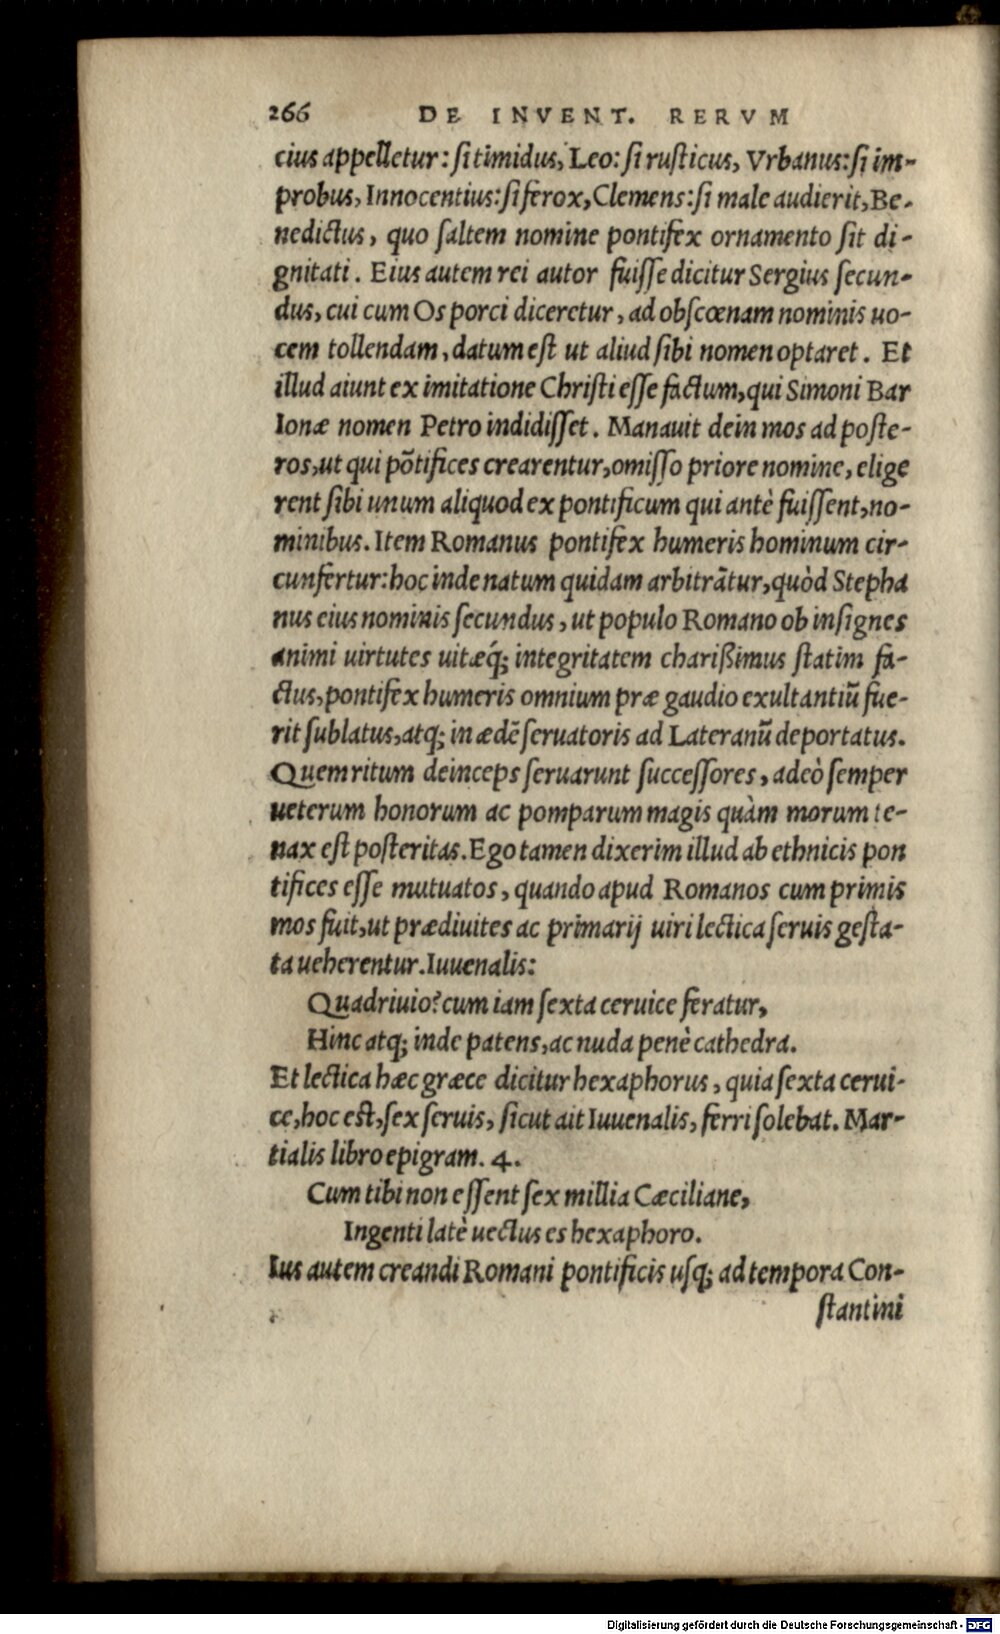 266 DE INVENT. RERVM
cius appelletur: si timidus, Leo: si rusticus, Vrbanus: si im-
probus, Innocentius: si ferox, Clemens: si male audierit, Be-
nedictus, quo saltem nomine pontifex ornamento sit di-
gnitati. Eius autem rei autor fuisse dicitur Sergius secun-
dus, cui cum Os porci diceretur, ad obscœnam nominis uo-
cem tollendam, datum est ut aliud sibi nomen optaret. Et
illud aiunt ex imitatione Christi esse factum, qui Simoni Bar
Ionæ nomen Petro indidisset. Manauit dein mos ad poste-
ros, ut qui põtifices crearentur, omisso priore nomine, elige
rent sibi unum aliquod ex pontificum qui antè fuissent, no-
minibus. Item Romanus pontifex humeris hominum cir-
cunfertur: hoc inde natum quidam arbitrãtur, quòd Stepha
nus eius nominis secundus, ut populo Romano ob insignes
animi uirtutes uitæq́; integritatem charißimus statim fa-
ctus, pontifex humeris omnium præ gaudio exultantiũ fue-
rit sublatus, atq; in ædẽ seruatoris ad Lateranũ deportatus.
Quem ritum deinceps seruarunt successores, adeò semper
ueterum honorum ac pomparum magis quàm morum te-
nax est posteritas. Ego tamen dixerim illud ab ethnicis pon
tifices esse mutuatos, quando apud Romanos cum primis
mos fuit, ut prædiuites ac primarij uiri lectica seruis gesta-
ta ueherentur. Iuuenalis:
Quadriuio? cum iam sexta ceruice feratur,
Hinc atq; inde patens, ac nuda penè cathedra.
Et lectica hæc græce dicitur hexaphorus, quia sexta cerui-
ce, hoc est, sex seruis, sicut ait Iuuenalis, ferri solebat. Mar-
tialis libro epigram. 4.
Cum tibi non essent sex millia Cæciliane,
Ingenti latè uectus es hexaphoro.
Ius autem creandi Romani pontificis usq; ad tempora Con-
stantini
Digitalisierung gefördert durch die Deutsche Forschungsgemeinschaft - DFG